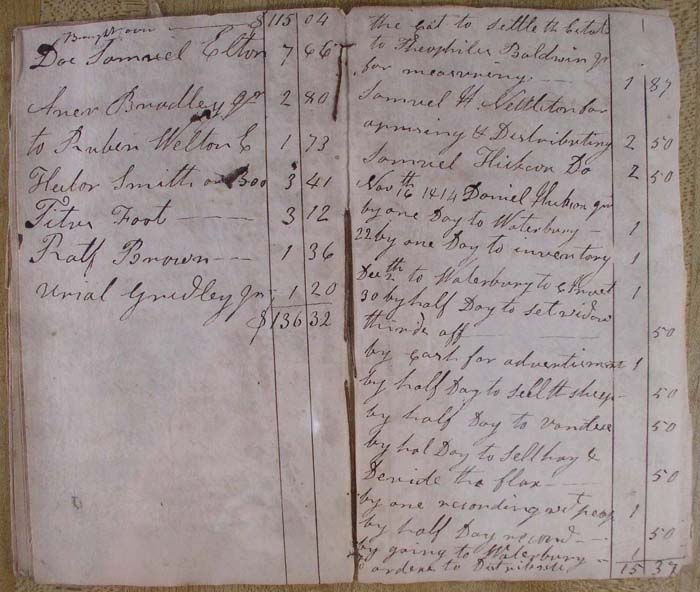 Brought over — $115 04
Doc Samuel Elton 7 66
Aner Bradley Jr 2 80
to Ruben Welton E 1 73
Heber Smith on Boo 3 41
Titus Foot — 3 12
Ralf Brown — 1 36
Urial Gridley Jr 1 20
$136 32
the Cat to settle th Estate 1
to Theophiles Baldwin Jr
for measuring — 1 87
Samuel H. Nettleton for
aprising & Distributing 2 50
Samuel Hickcox Do 2 50
Novth 16 1814 Daniel Hickcox Jun
by one Day to Waterbury — 1
22 by one Day to inventory 1
Decth 2 to Waterbury to 1
30 by half Day to set widow
thirds off — 50
by Cash for advertisment 1
by half Day to sell th sheep — 50
by half Day to vandue 50
by hal Day to sell hay &
Devide the flax — 50
by one reconding 1
by half Day record — 50
by going to Waterbury — 1
orders to Distribute
15 37